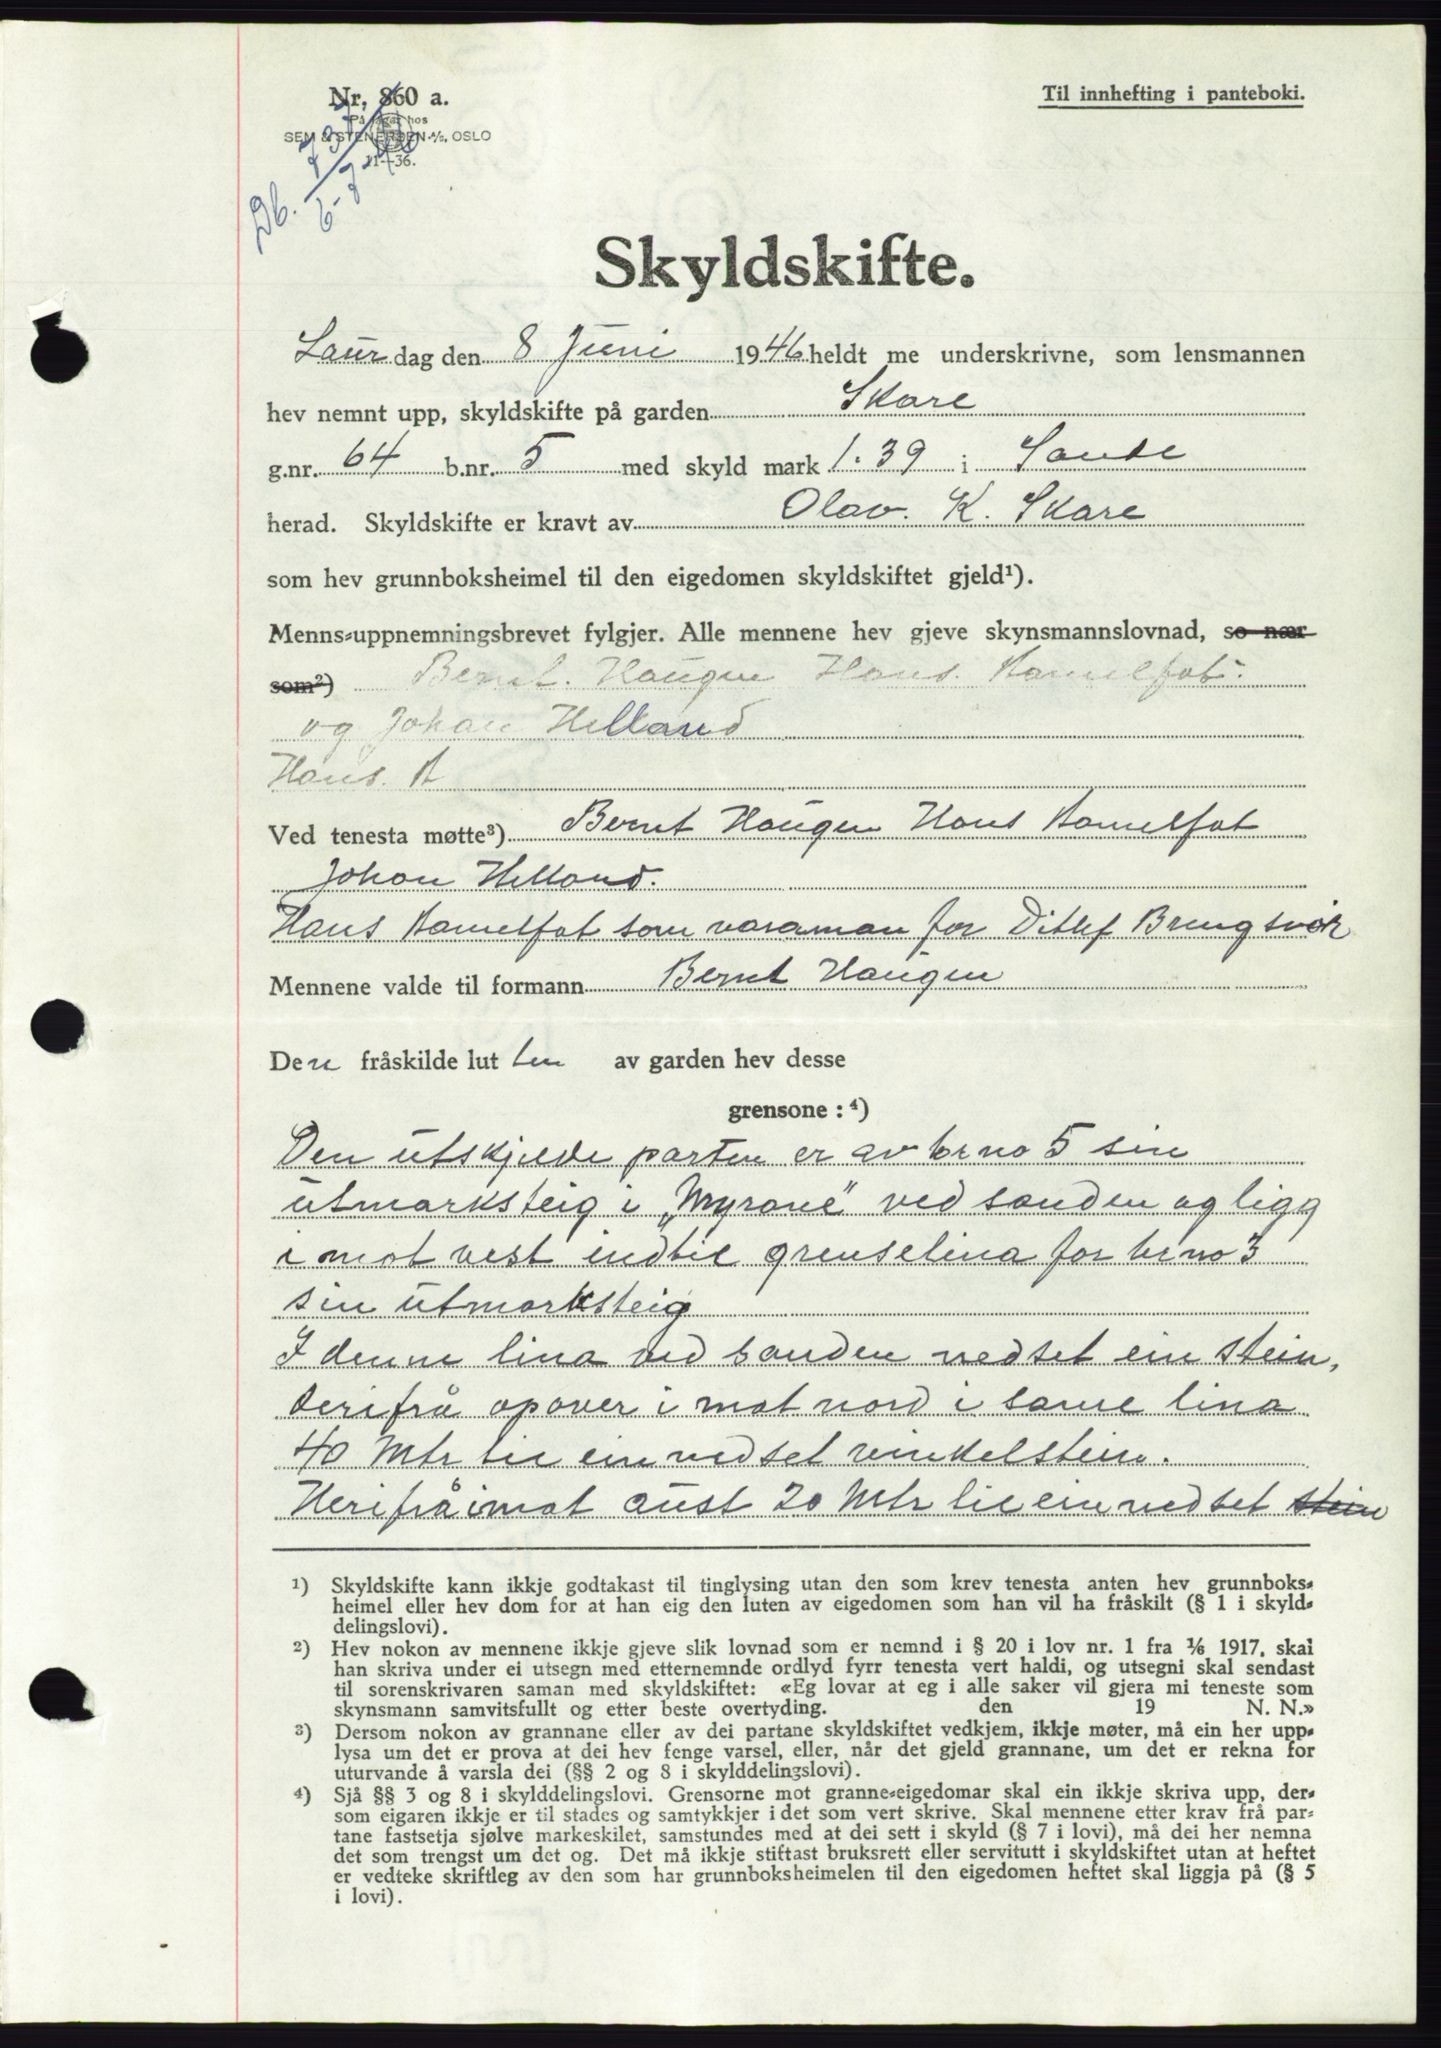 Nr. 860 a.
På lager hos
SEM & STENERSEN A/S, OSLO
11—36.
Db. 737/6-7-46
Til innhefting i panteboki.
Skyldskifte.
Laur dag den 8 Juni 1946 heldt me underskrivne, som lensmannen
hev nemnt upp, skyldskifte på garden Skare
g.nr. 64 b.nr. 5 med skyld mark 1.39 i Sande
herad. Skyldskifte er kravt av Olav. K. Skare
som hev grunnboksheimel til den eigedomen skyldskiftet gjeld¹).
Menns-uppnemningsbrevet fylgjer. Alle mennene hev gjeve skynsmannslovnad, so nær
som²) Bernt. Haugen Hans. Hamelfot.
og Johan Helland
Hans. A
Ved tenesta møtte³) Bernt Haugen Hans Hamelfot
Johan Helland.
Hans Hamelfot som varaman for Ditlef Bringsvor
Mennene valde til formann Bernt Haugen
Den fråskilde luten av garden hev desse
grensone : ⁴)
Den utskjilde parten er av br no 5 sin
utmarksteig i „Myrane" ved sanden og ligg
i mot vest indtil grenselina for br no 3
sin utmarksteig
I denne lina ved sanden nedset ein stein,
derifrå opover i mot nord i same lina
40 Mtr til ein nedset vinkelstein.
Herifrå imot aust 20 Mtr til ein nedset stein
¹) Skyldskifte kann ikkje godtakast til tinglysing utan den som krev tenesta anten hev grunnboks-
heimel eller hev dom for at han eig den luten av eigedomen som han vil ha fråskilt (§ 1 i skyld-
delingslovi).
²) Hev nokon av mennene ikkje gjeve slik lovnad som er nemnd i § 20 i lov nr. 1 fra 1/6 1917, skal
han skriva under ei utsegn med etternemnde ordlyd fyrr tenesta vert haldi, og utsegni skal sendast
til sorenskrivaren saman med skyldskiftet: «Eg lovar at eg i alle saker vil gjera mi teneste som
skynsmann samvitsfullt og etter beste overtyding. den 19 N. N.»
³) Dersom nokon av grannane eller av dei partane skyldskiftet vedkjem, ikkje møter, må ein her upp-
lysa um det er prova at dei hev fenge varsel, eller, når det gjeld grannane, um det er rekna for
uturvande å varsla dei (§§ 2 og 8 i skylddelingslovi).
⁴) Sjå §§ 3 og 8 i skylddelingslovi. Grensorne mot granne-eigedomar skal ein ikkje skriva upp, der-
som eigaren ikkje er til stades og samtykkjer i det som vert skrive. Skal mennene etter krav frå par-
tane fastsetja sjølve markeskilet, samstundes med at dei sett i skyld (§ 7 i lovi), må dei her nemna
det som trengst um det og. Det må ikkje stiftast bruksrett eller servitutt i skyldskiftet utan at heftet
er vedteke skriftleg av den som har grunnboksheimelen til den eigedomen heftet skal liggja på (§ 5
i lovi).